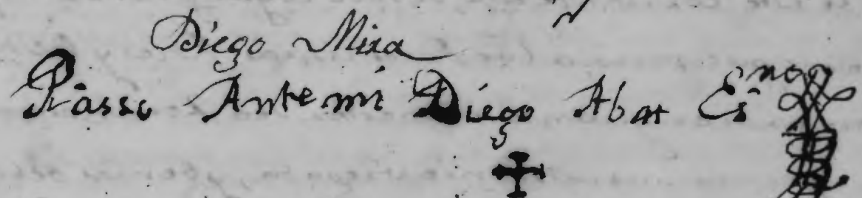 Diego Mira
Passo Ante mi Diego Abat Esno